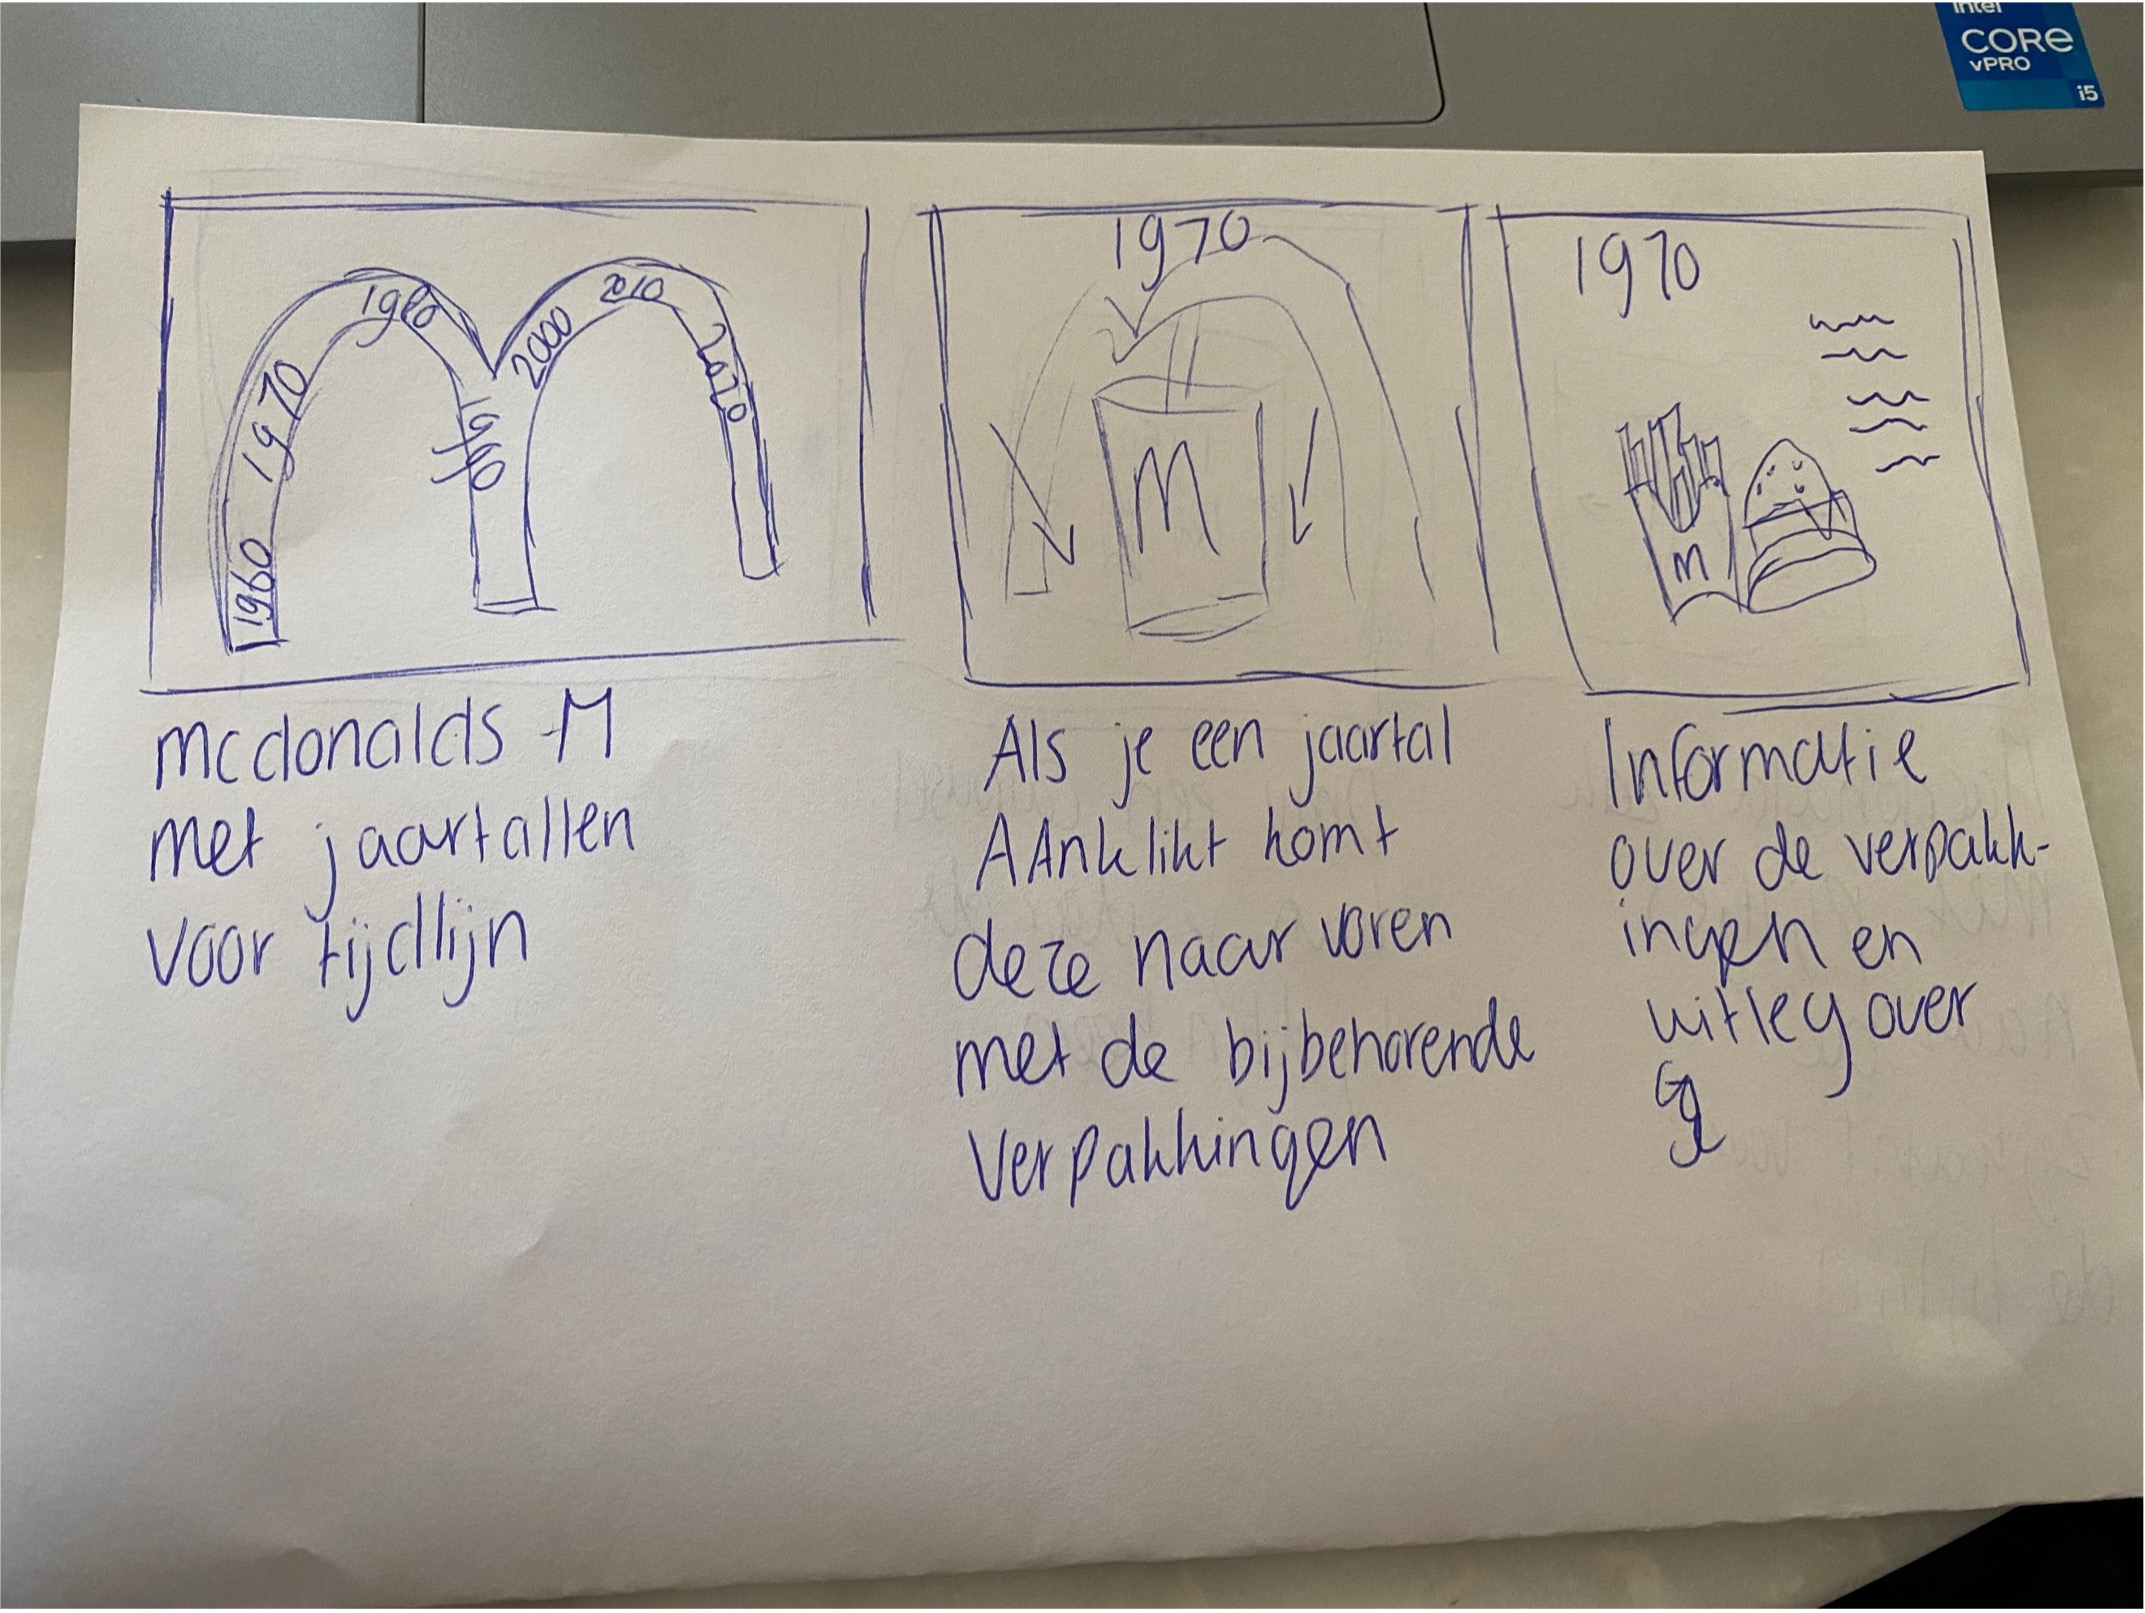 intel
CORE
vPRO
i5
1960
1970
1980
1990
2000
2010
2020
mcdonalds -M
met jaartallen
voor tijdlijn
1970
M
Als je een jaartal
AAnklikt komt
deze naar voren
met de bijbehorende
verpakkingen
1970
m
Informatie
over de verpakk-
ingen en
uitleg over